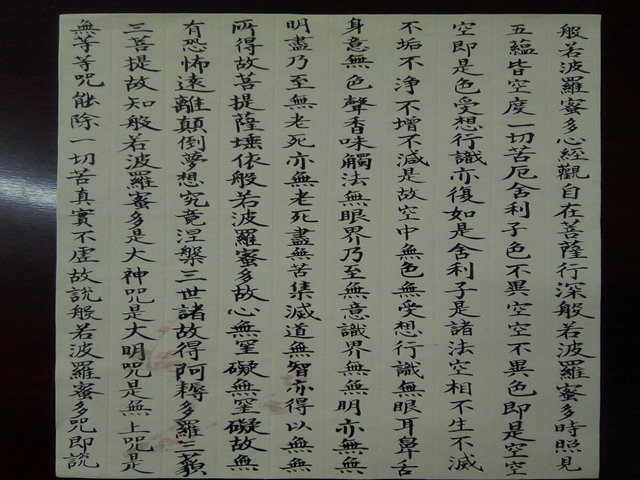 般若波羅蜜多心經觀自在菩薩行深般若波羅蜜多時照見
五蘊皆空度一切苦厄舍利子色不異空空不異色即是空空
空即是色受想行識亦復如是舍利子是諸法空相不生不滅
不垢不淨不增不減是故空中無色無受想行識無眼耳鼻舌
身意無色聲香味觸法無眼界乃至無意識界無無明亦無無
明盡乃至無老死亦無老死盡無苦集滅道無智亦得以無無
所得故菩提薩埵依般若波羅蜜多故心無罣礙無罣礙故無
有恐怖遠離顛倒夢想究竟涅槃三世諸故得阿耨多羅三藐
三菩提故知般若波羅蜜多是大神咒是大明咒是無上咒是
無等等咒能除一切苦真實不虛故說般若波羅蜜多咒即說